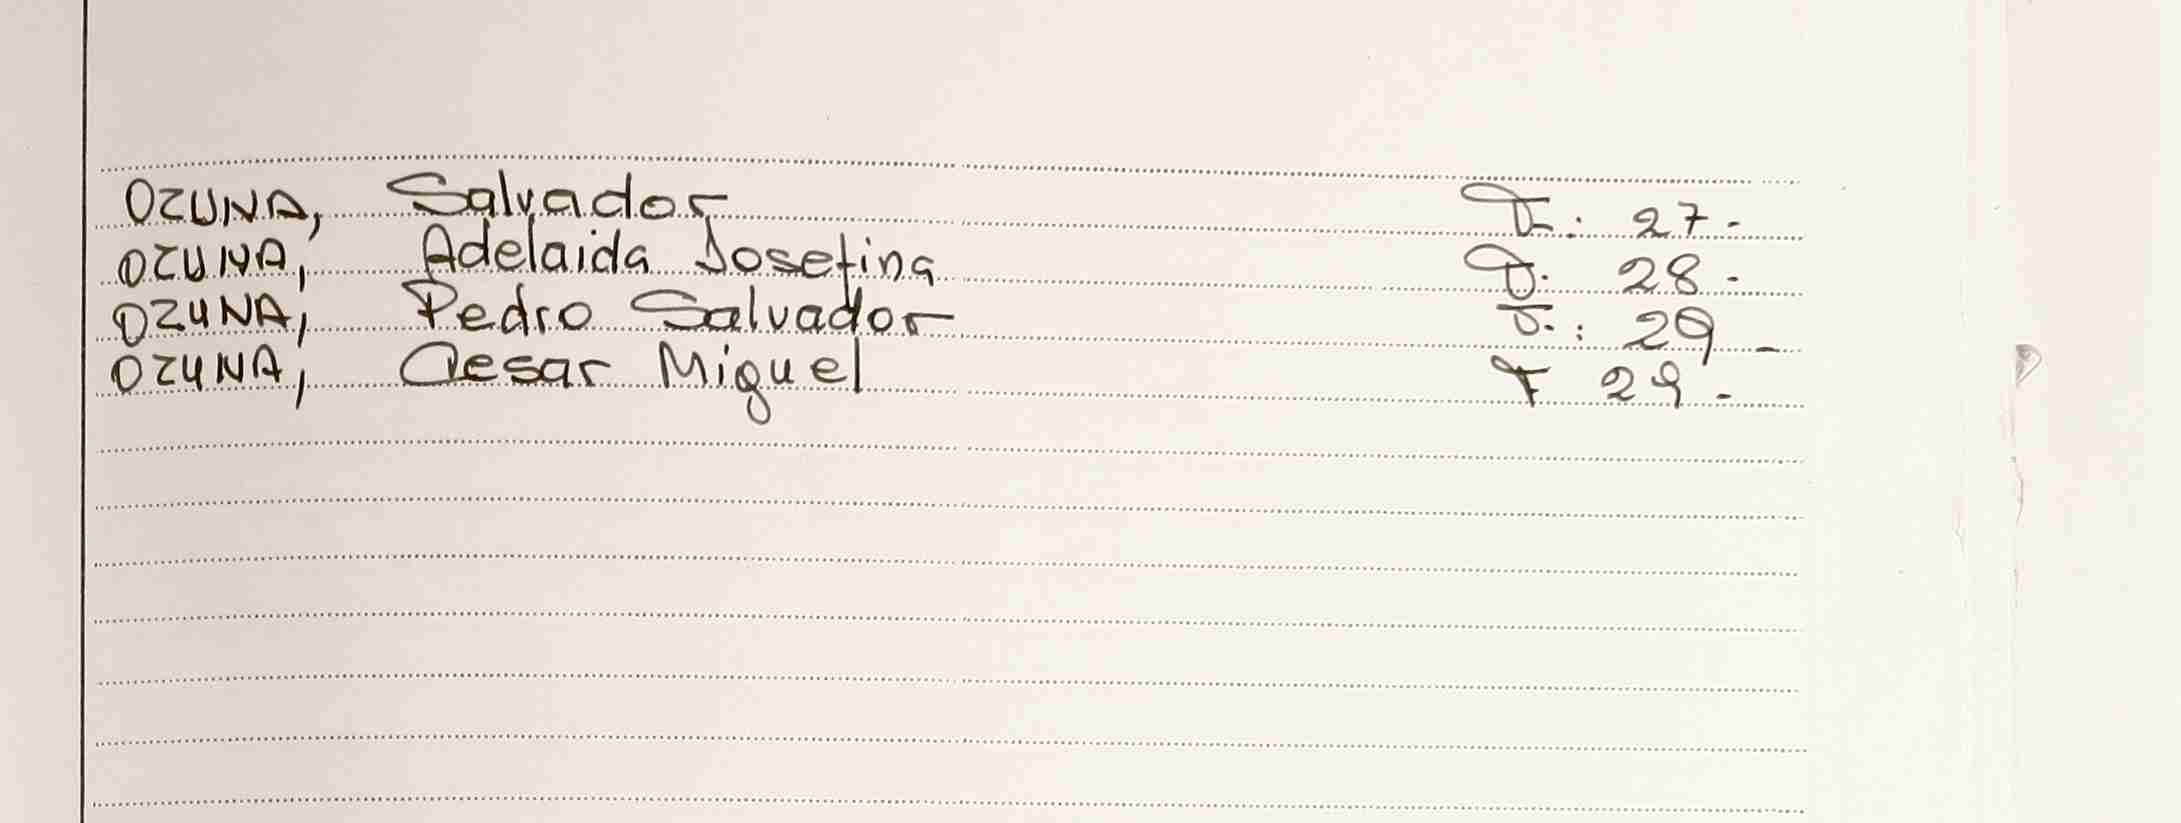 OZUNA, Salvador F: 27.-
OZUNA, Adelaida Josefina F. 28.-
OZUNA, Pedro Salvador F.: 29.-
OZUNA, Cesar Miguel F 29.-